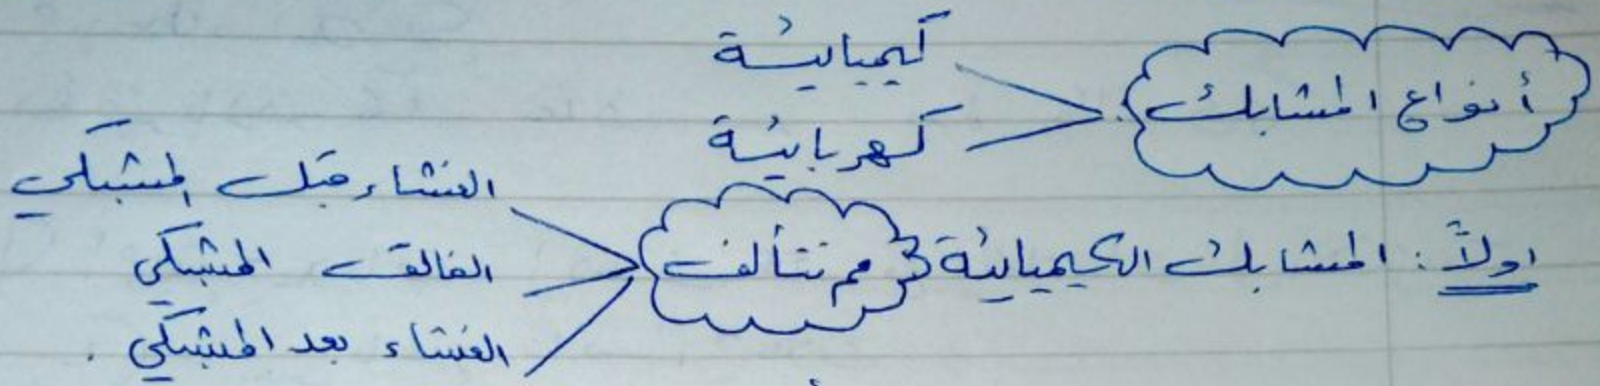 أنواع المشابك
كيميائية
كهربائية
اولاً: المشابك الكيميائية مم تتألف
الغشاء قبل المشبكي
الفالق المشبكي
الغشاء بعد المشبكي.